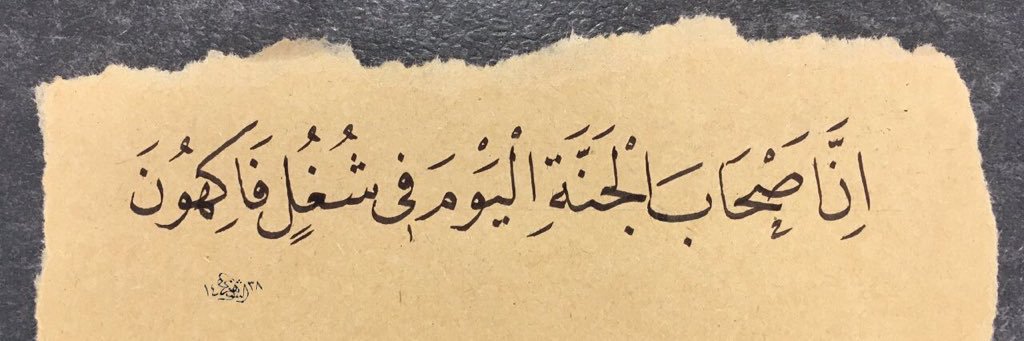 اِنَّ اَصْحَابَ الْجَنَّةِ الْيَوْمَ فِى شُغُلٍ فَاكِهُونَ
١٤٣٨